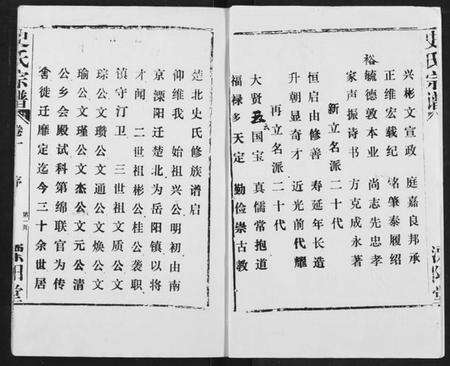 史氏宗譜
興彬文宣政　庭嘉良邦承
正維宏載紀　名肇泰履紹
裕毓德敦本業　尚志先忠孝
家声振诗书　方克成永著
新立名派二十代
恒启由修善　寿延年长造
升朝显奇才　近光前代耀
再立名派二十代
大贤五国宝　真儒常抱道
福禄多天定　勤俭崇古教
溧阳堂
史氏宗譜
卷十
序
第一頁
溧阳堂
楚北史氏修族谱启
仰维我　始祖兴公明初由南
京溧阳迁楚北为岳阳镇以将
才闻　二世祖彬公桂公袭职
镇守汀卫　三世祖文质公文
琮公文瓒公文通公文焕公文
瑜公文瑾公文杰公文元公清
公乡会殿试科第绵联官为传
舍徙迁靡定迄今三十余世居